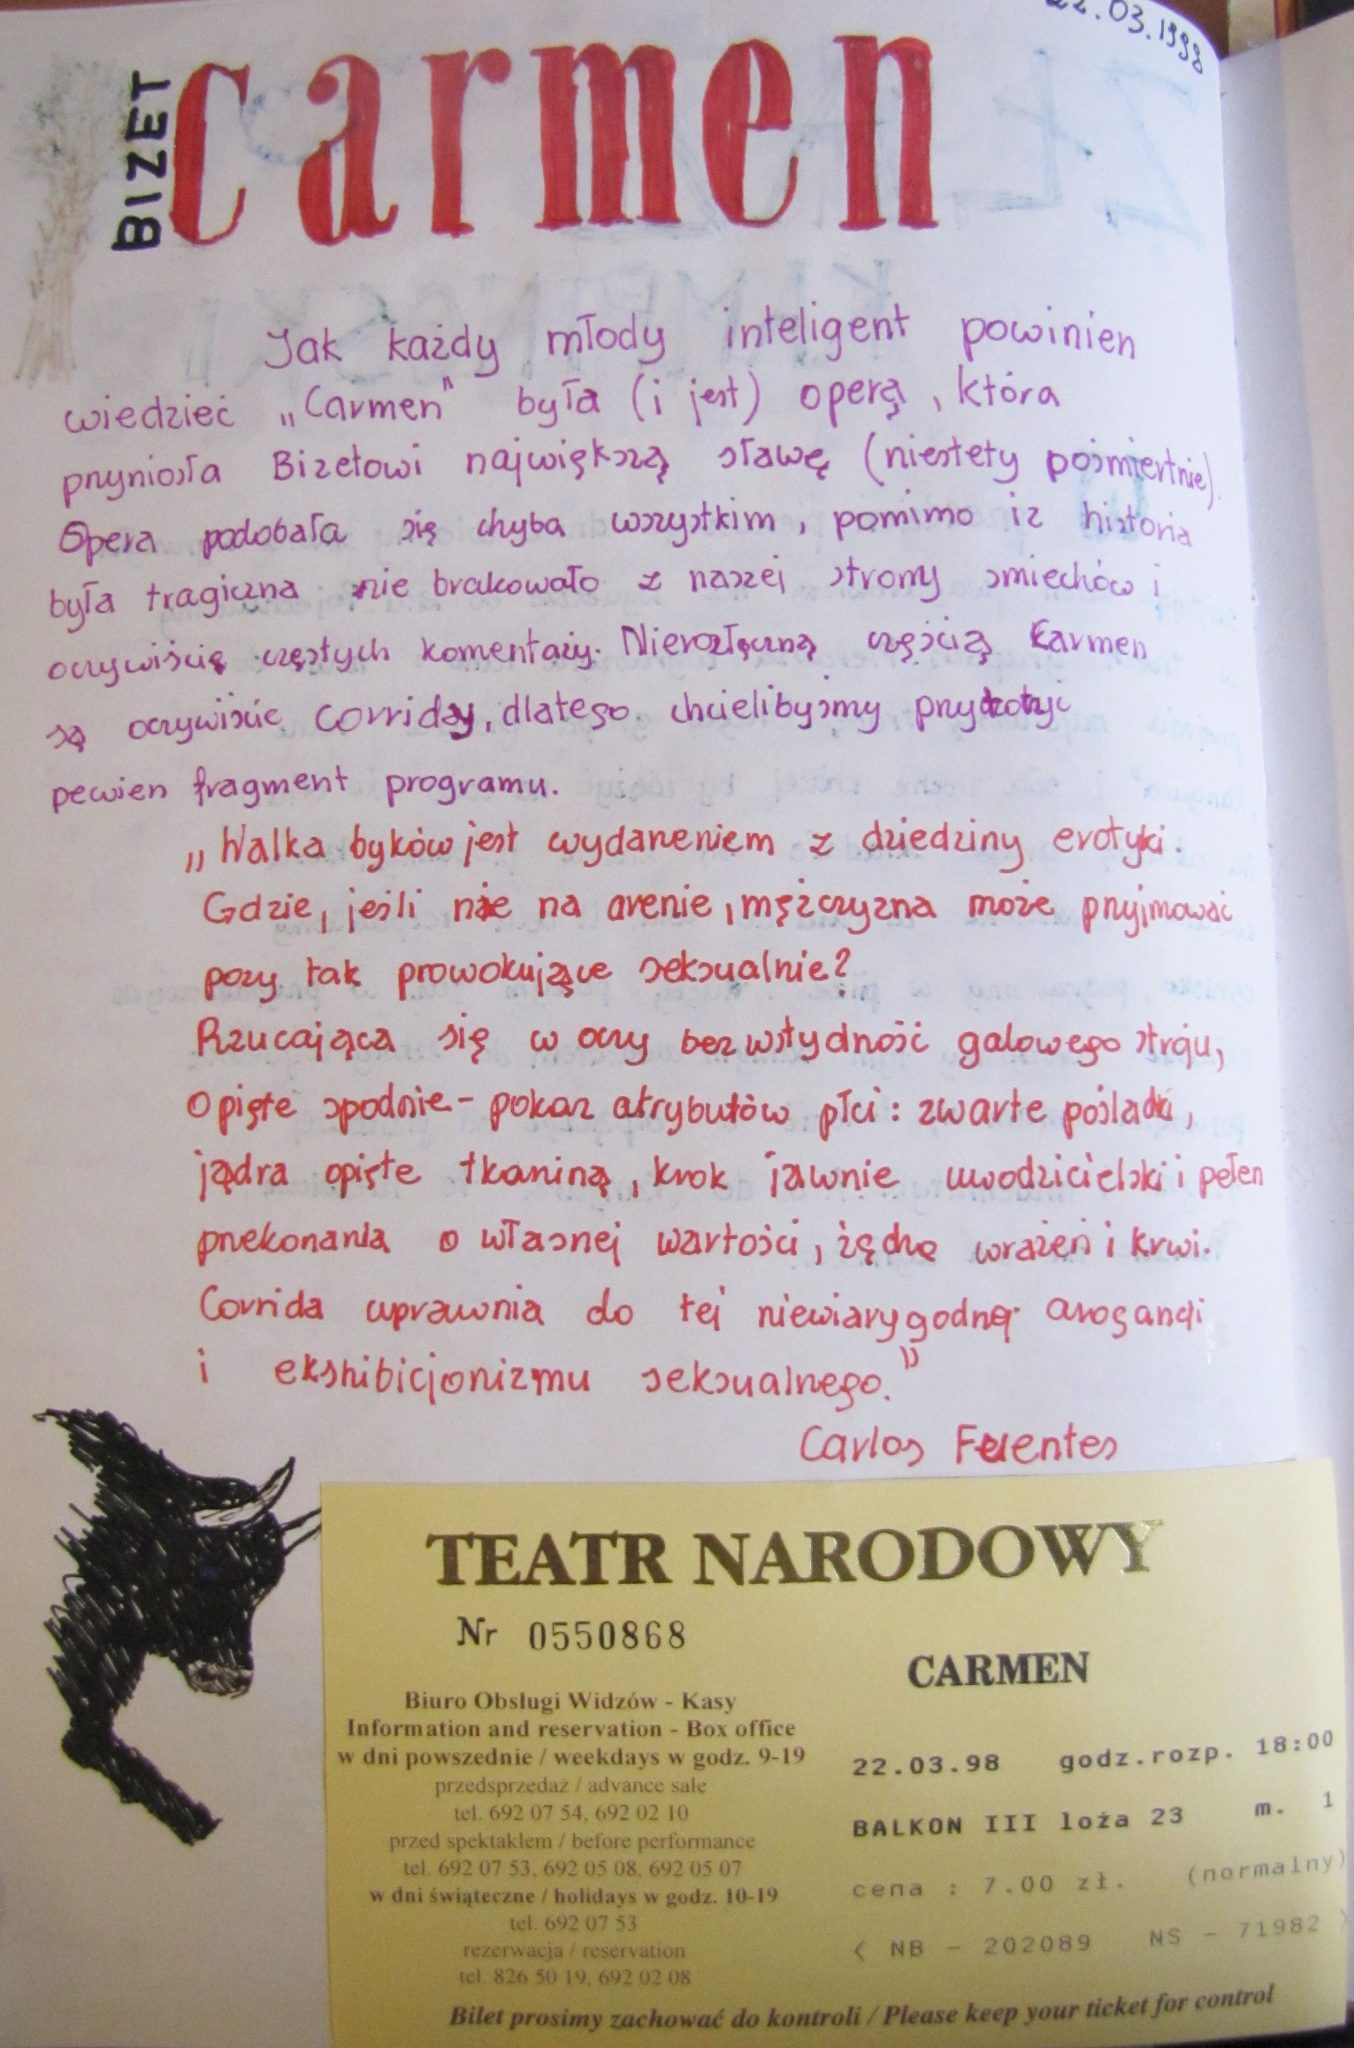 22.03.1998
BIZET
carmen
Jak każdy młody inteligent powinien
wiedzieć „Carmen" była (i jest) operą, która
przyniosła Bizetowi największą sławę (niestety pośmiertnie).
Opera podobała się chyba wszystkim, pomimo iż historia
była tragiczna nie brakowało z naszej strony śmiechów i
oczywiście częstych komentarzy. Nierozłączną częścią Carmen
są oczywiście corridy, dlatego chcielibyśmy przytoczyć
pewien fragment programu.
„Walka byków jest wydarzeniem z dziedziny erotyki.
Gdzie, jeśli nie na arenie, mężczyzna może przyjmować
pozy tak prowokujące seksualnie?
Rzucająca się w oczy bezwstydność galowego stroju,
opięte spodnie - pokaz atrybutów płci: zwarte pośladki,
jądra opięte tkaniną, krok jawnie uwodzicielski i pełen
przekonania o własnej wartości, żądzę wrażeń i krwi.
Corrida uprawnia do tej niewiarygodnej arogancji
i ekshibicjonizmu seksualnego."
Carlos Fuentes
TEATR NARODOWY
Nr 0550868
CARMEN
Biuro Obsługi Widzów - Kasy
Information and reservation - Box office
w dni powszednie / weekdays w godz. 9-19
przedsprzedaż / advance sale
tel. 692 07 54, 692 02 10
przed spektaklem / before performance
tel. 692 07 53, 692 05 08, 692 05 07
w dni świąteczne / holidays w godz. 10-19
tel. 692 07 53
rezerwacja / reservation
tel. 826 50 19, 692 02 08
22.03.98 godz.rozp. 18:00
BALKON III loża 23 m. 1
cena : 7.00 zł. (normalny)
( NB - 202089 NS - 71982 )
Bilet prosimy zachować do kontroli / Please keep your ticket for control